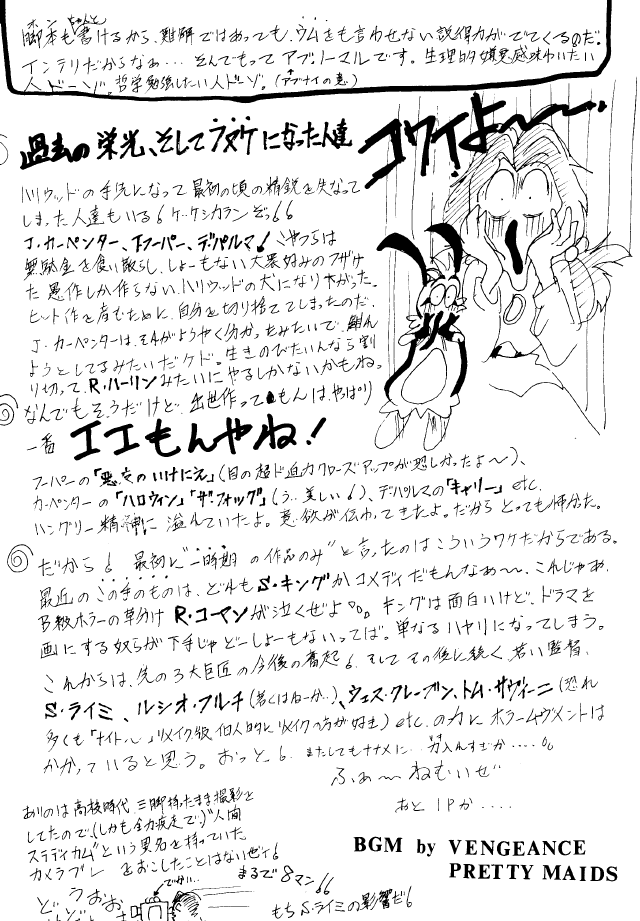 脚本も書けるから、難解ではあっても、ウムをも言わせない説得力がでてくるのだ。
インテリだからなぁ…そんでもってアブノーマルです。生理的嫌悪感味わいたい
人ドーゾ。哲学勉強したい人ドーゾ。(アブナイの意)
コワイよ〜〜
過去の栄光、そしてフヌケになった人達
ハリウッドの手先になって最初の頃の精鋭を失なって
しまった人達もいる! ケ・ケシカランぞっ!!
J・カーペンター、T・フーパー、デ・パルマ! こやつらは
無駄金を食い散らし、しょーもない大衆好みのフザけ
た悪作しか作らない、ハリウッドの犬になり下がった。
ヒット作を産むために、自分を切り捨ててしまったのだ。
J・カーペンターは、それがようやく分かったみたいで、
ようとしてるみたいだケド。生きのびたいんなら割
り切って R・ハーリンみたいにやるしかないかもね。
なんでもそうだけど、出世作ってもんは、やっぱり
一番 エエもんやね!
フーパーの「悪魔のいけにえ」(目の超ド迫力クローズアップが恐しかったよ〜)、
カーペンターの「ハロウィン」「ザ・フォッグ」(う…美しい!)、デ・パルマの「キャリー」etc.
ハングリー精神に溢れていたよ。意欲が伝わってきたよ。だからとっても怖かった。
だから! 最初に"一時期の作品のみ"と言ったのはこういうワケだからである。
最近のこの手のものは、どれもS・キングかコメディだもんなぁ〜。これじゃあ、
B級ホラーの草分け R・コーマンが泣くぜよ。キングは面白いけど、ドラマを
画にする奴らが下手じゃどーしょーもないってば。単なるハヤリになってしまう。
これからは、先の3大巨匠の今後の奮起! そしてその後に続く、若い監督、
S・ライミ、ルシオ・フルチ(若くはねーか…)、ウェス・クレーブン、トム・サヴィーニ(恐れ
多くも「ナイト〜」リメイク版 個人的にリメイクの方が好き) etc. の力にホラームーヴメントは
かかっていると思う。おっと! またしてもナナメに…力入れすぎか……。
ふぁ〜ねむいぜ
あと1Pか….
ありのは高校時代、三脚持ったまま撮影と
してたので、(しかも全力疾走で)"人間
ステディカム"という異名を持っていた。
カメラブレ をおこしたことはないゼイ!
まるで8マン!!
もちS・ライミの影響だ!
どうおお
BGM by VENGEANCE
PRETTY MAIDS